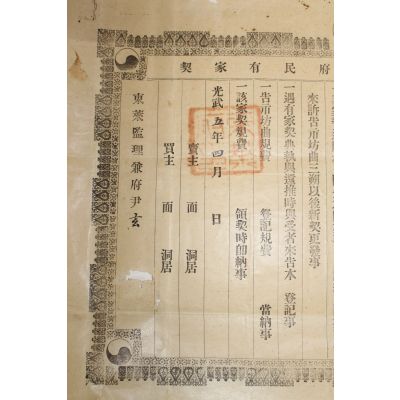 府民有家契
來訴告市坊曲三朔以後新契更發事
一遇有家契典執與還推時與受者來告本 登記事
一告市坊曲規費 登記規費 當納事
一該家契規費 領契時卽納事
光武五年四月 日
賣主 面 洞居
買主 面 洞居
東萊監理兼府尹玄